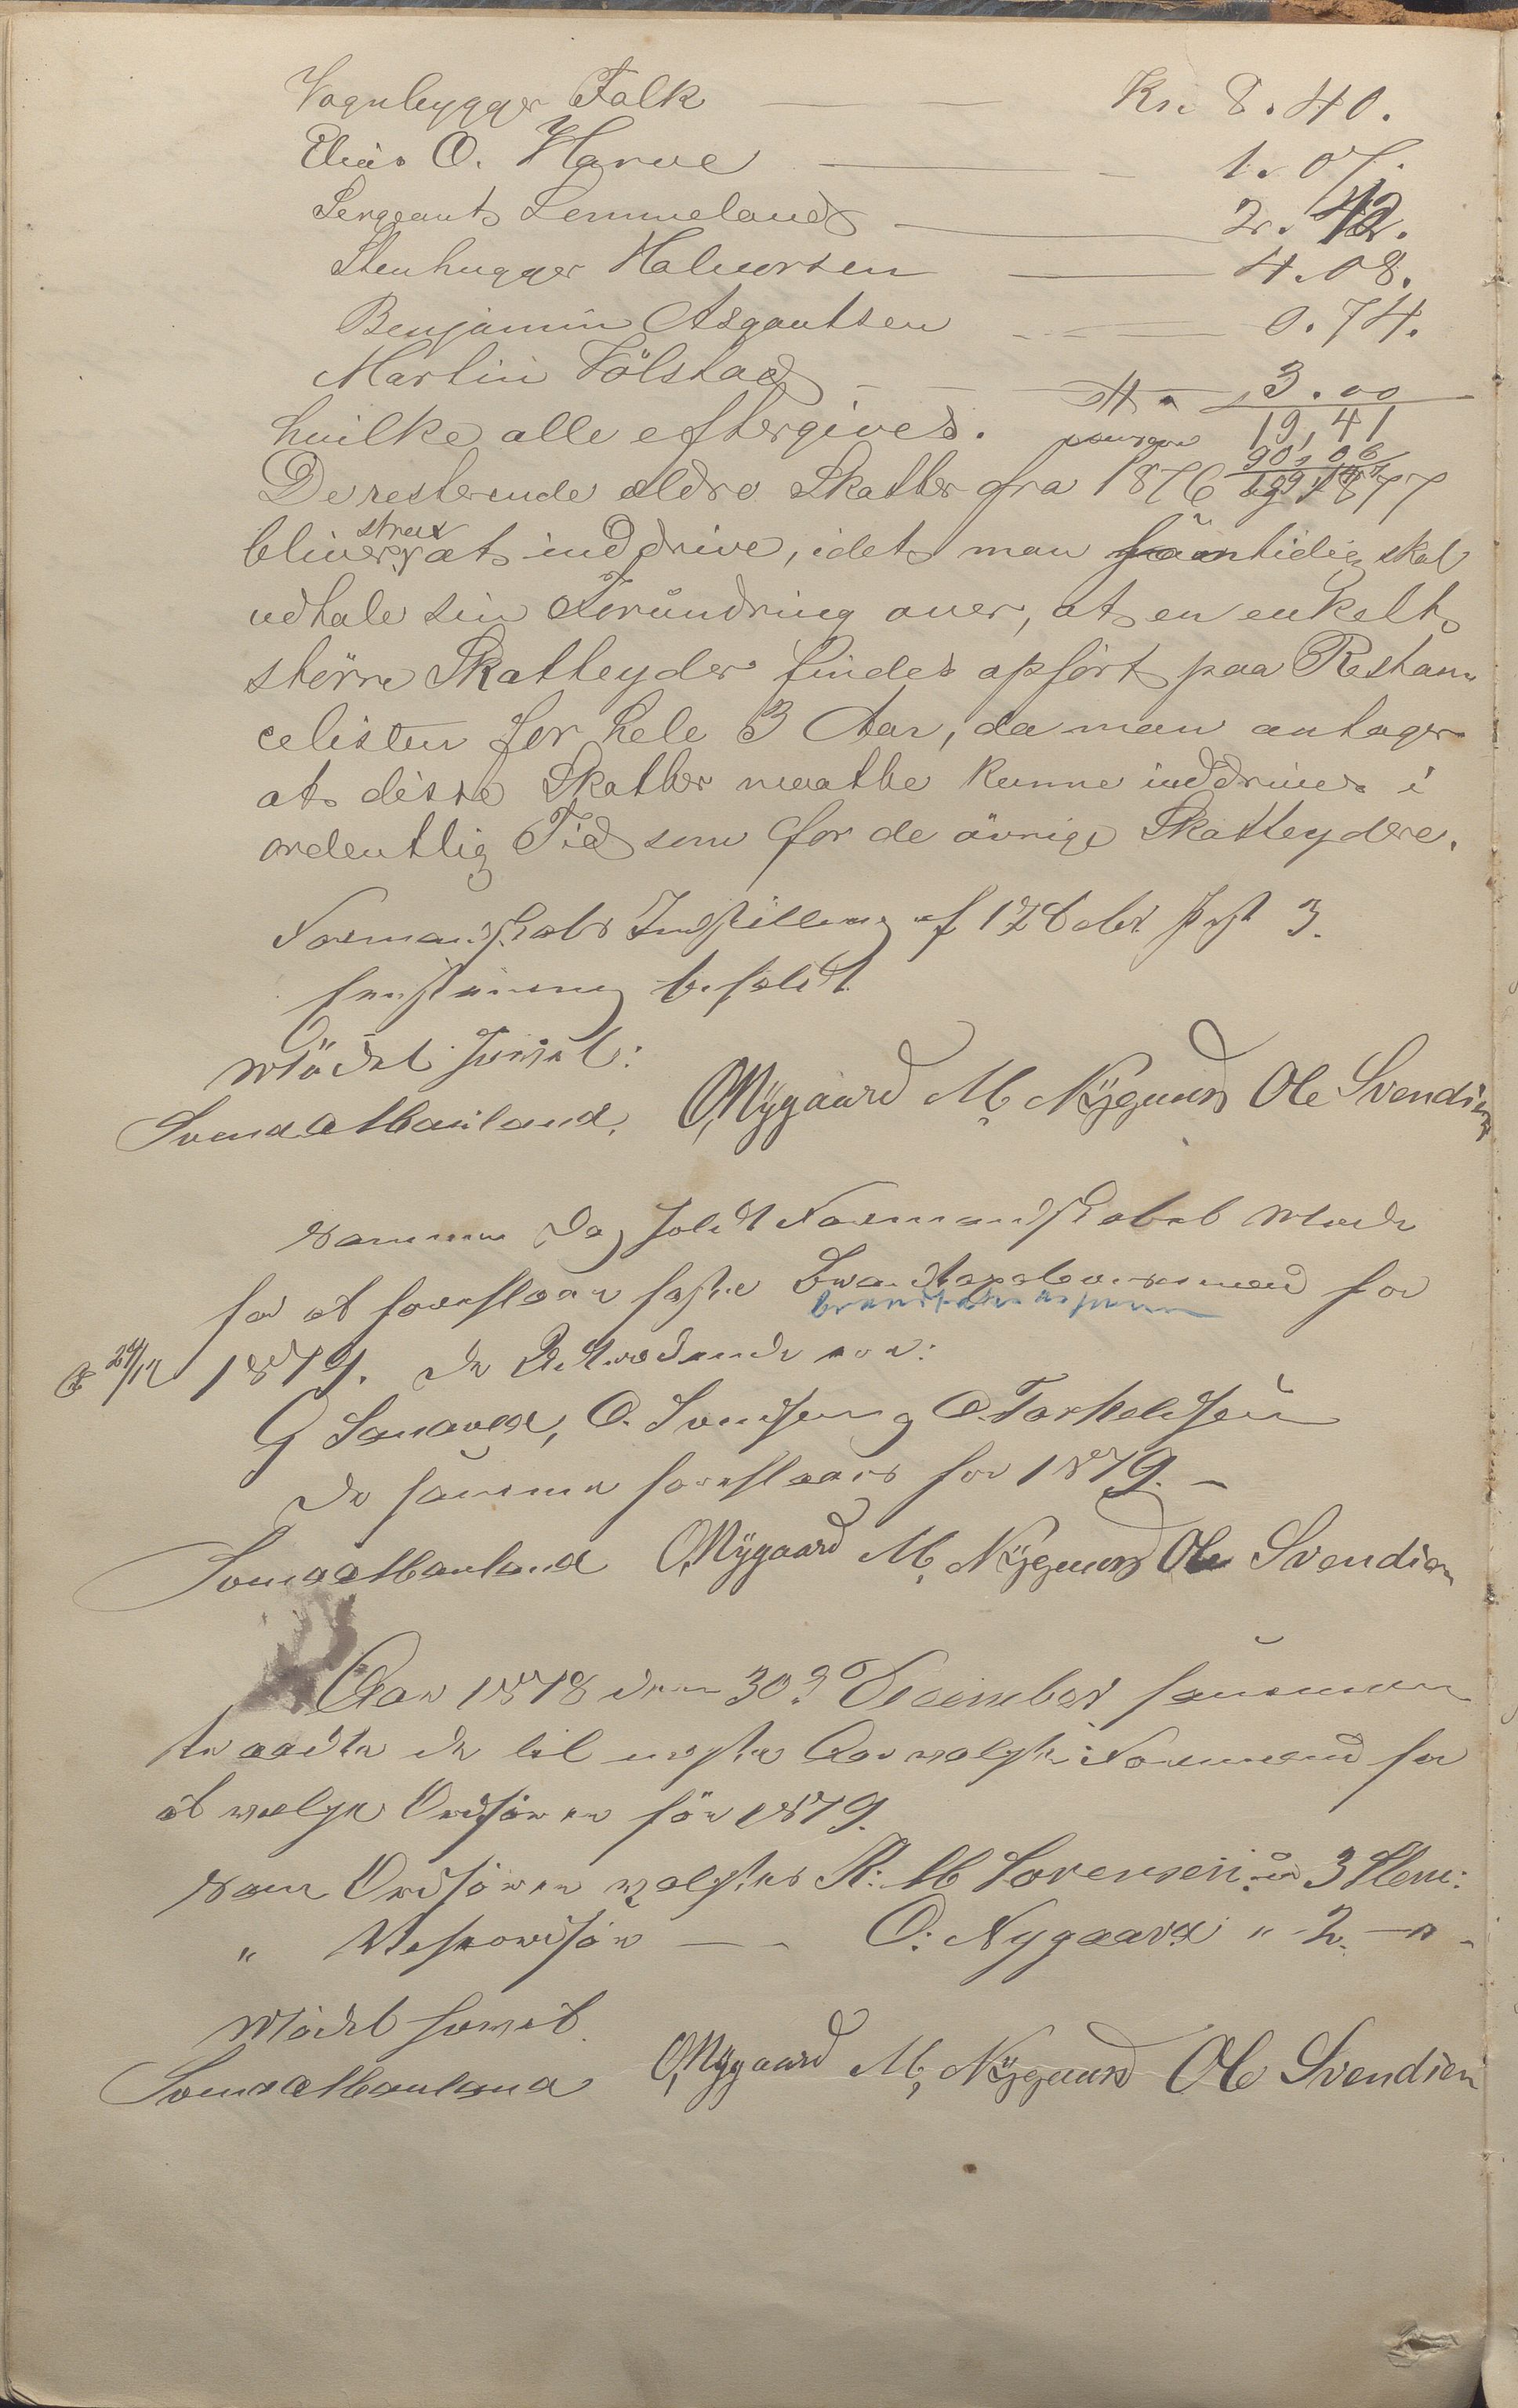 Vognbygger Falk — Kr. 8.40.
Elias O. Harve — 1.07.
Sergeant Lemmeland — 2.42.
Stenhugger Halvorsen — 4.08.
Benjamin Asgautsen — 0.74.
Martin Fölstad — 3.00
hvilke alle eftergives. 19,41
90,06
De resterende ældre Skatter fra 1876 og 1877
bliver strax at inddrive, idet man samtidig skal
udtale sin Forundring over, at en enkelt
större Skatteyder findes opfört paa Restan-
celisten for hele 3 Aar, da man antager
at disse Skatter maatte kunne inddrives i
ordentlig Tid som for de övrige Skatteydere.
Formandskabs Indstilling af 17 Octbr Post 3.
enstemmig bifaldt
Mödet hævet:
Svend a Hauland. O, Nygaard M, Nygaard Ole Svendsen
Samme Dag holdt Formandskabet Möde
for at foreslaa faste Brandtaxationsmænd for
1879. De Udtrædende var:
E 24/12
G Sandved, O. Svendsen og O. Torkeldsen
De samme foreslaaes for 1879. —
Svend a Hauland O, Nygaard M, Nygaard Ole Svendsen
Aar 1878 den 30 December sammen
traadte de til næste Aar valgte Formænd for
at vælge Ordförer för 1879.
Som Ordförer valgtes R: M Sörensen: m 3 Stem:
" Viseordför — O: Nygaard " 2 — " -
Mödet hævet.
Svend a Hauland O, Nygaard M, Nygaard Ole Svendsen